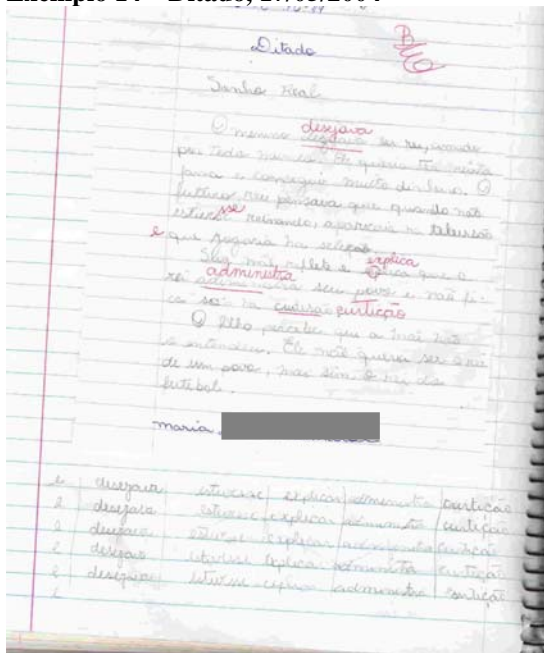 Exemplo 14 – Ditado, 27/05/2004
Ditado
B
Sonho Real
desejava
O menino ser rei,
por todo mundo. Ele queria ter muita
fama e conseguir muito dinheiro. O
futuro rei pensava que quando não
sse reinando, apareceria na televisão
e que jogaria na seleção.
explica
Sua mãe reflete e que o
administra
rei seu povo e não fi-
ca só na curtição
O filho percebe que a mãe não
o entendeu. Ele não queria ser o rei
de um povo, mas sim o rei do
futebol.
maria
e desejava estivesse explica administra curtição
e desejava estivesse explica administra curtição
e desejava estivesse explica administra curtição
e desejava estivesse explica administra curtição
e desejava estivesse explica administra curtição
e